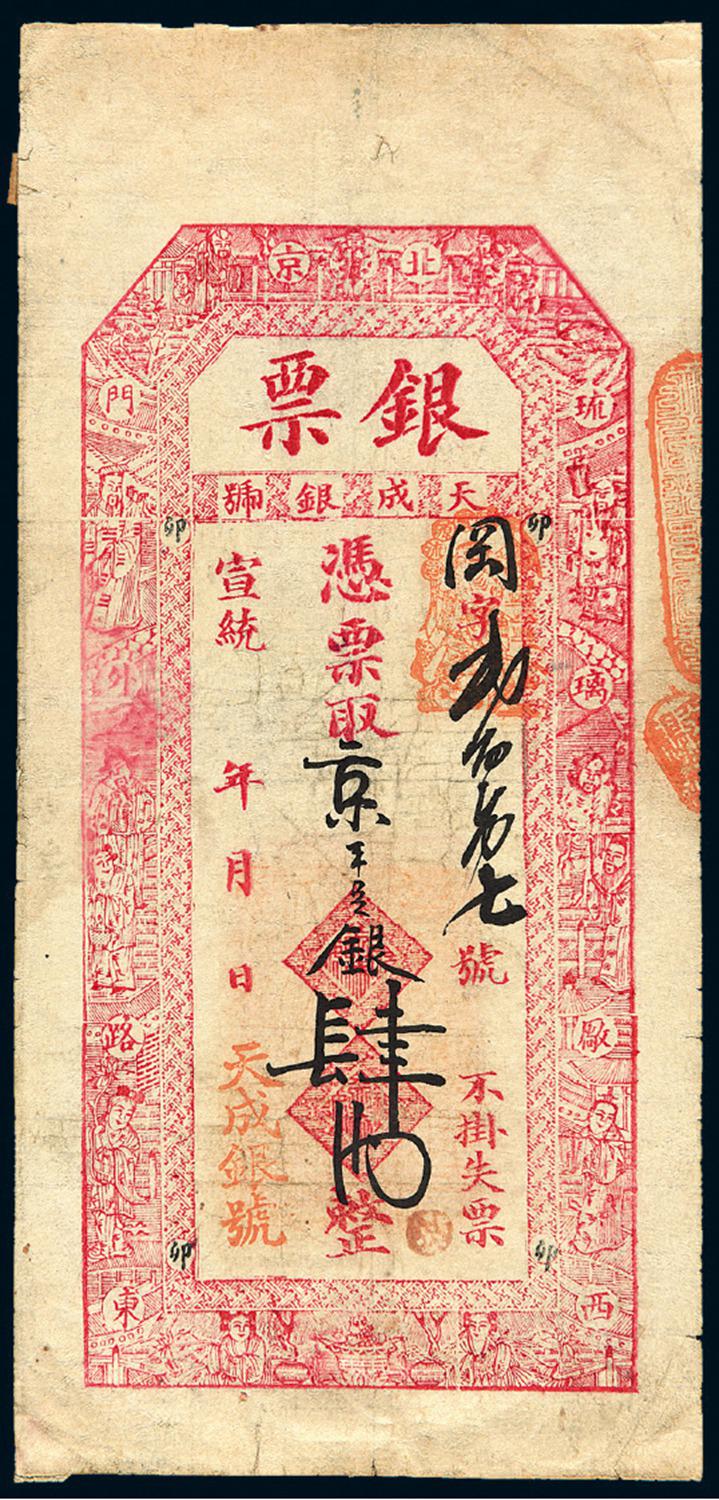 北京
琉璃厰西
門路東
銀票
天成銀號
字弍百七號
不掛失票
憑票取京平足銀肆両整
宣統年月日
天成銀號
卯
卯
卯
卯